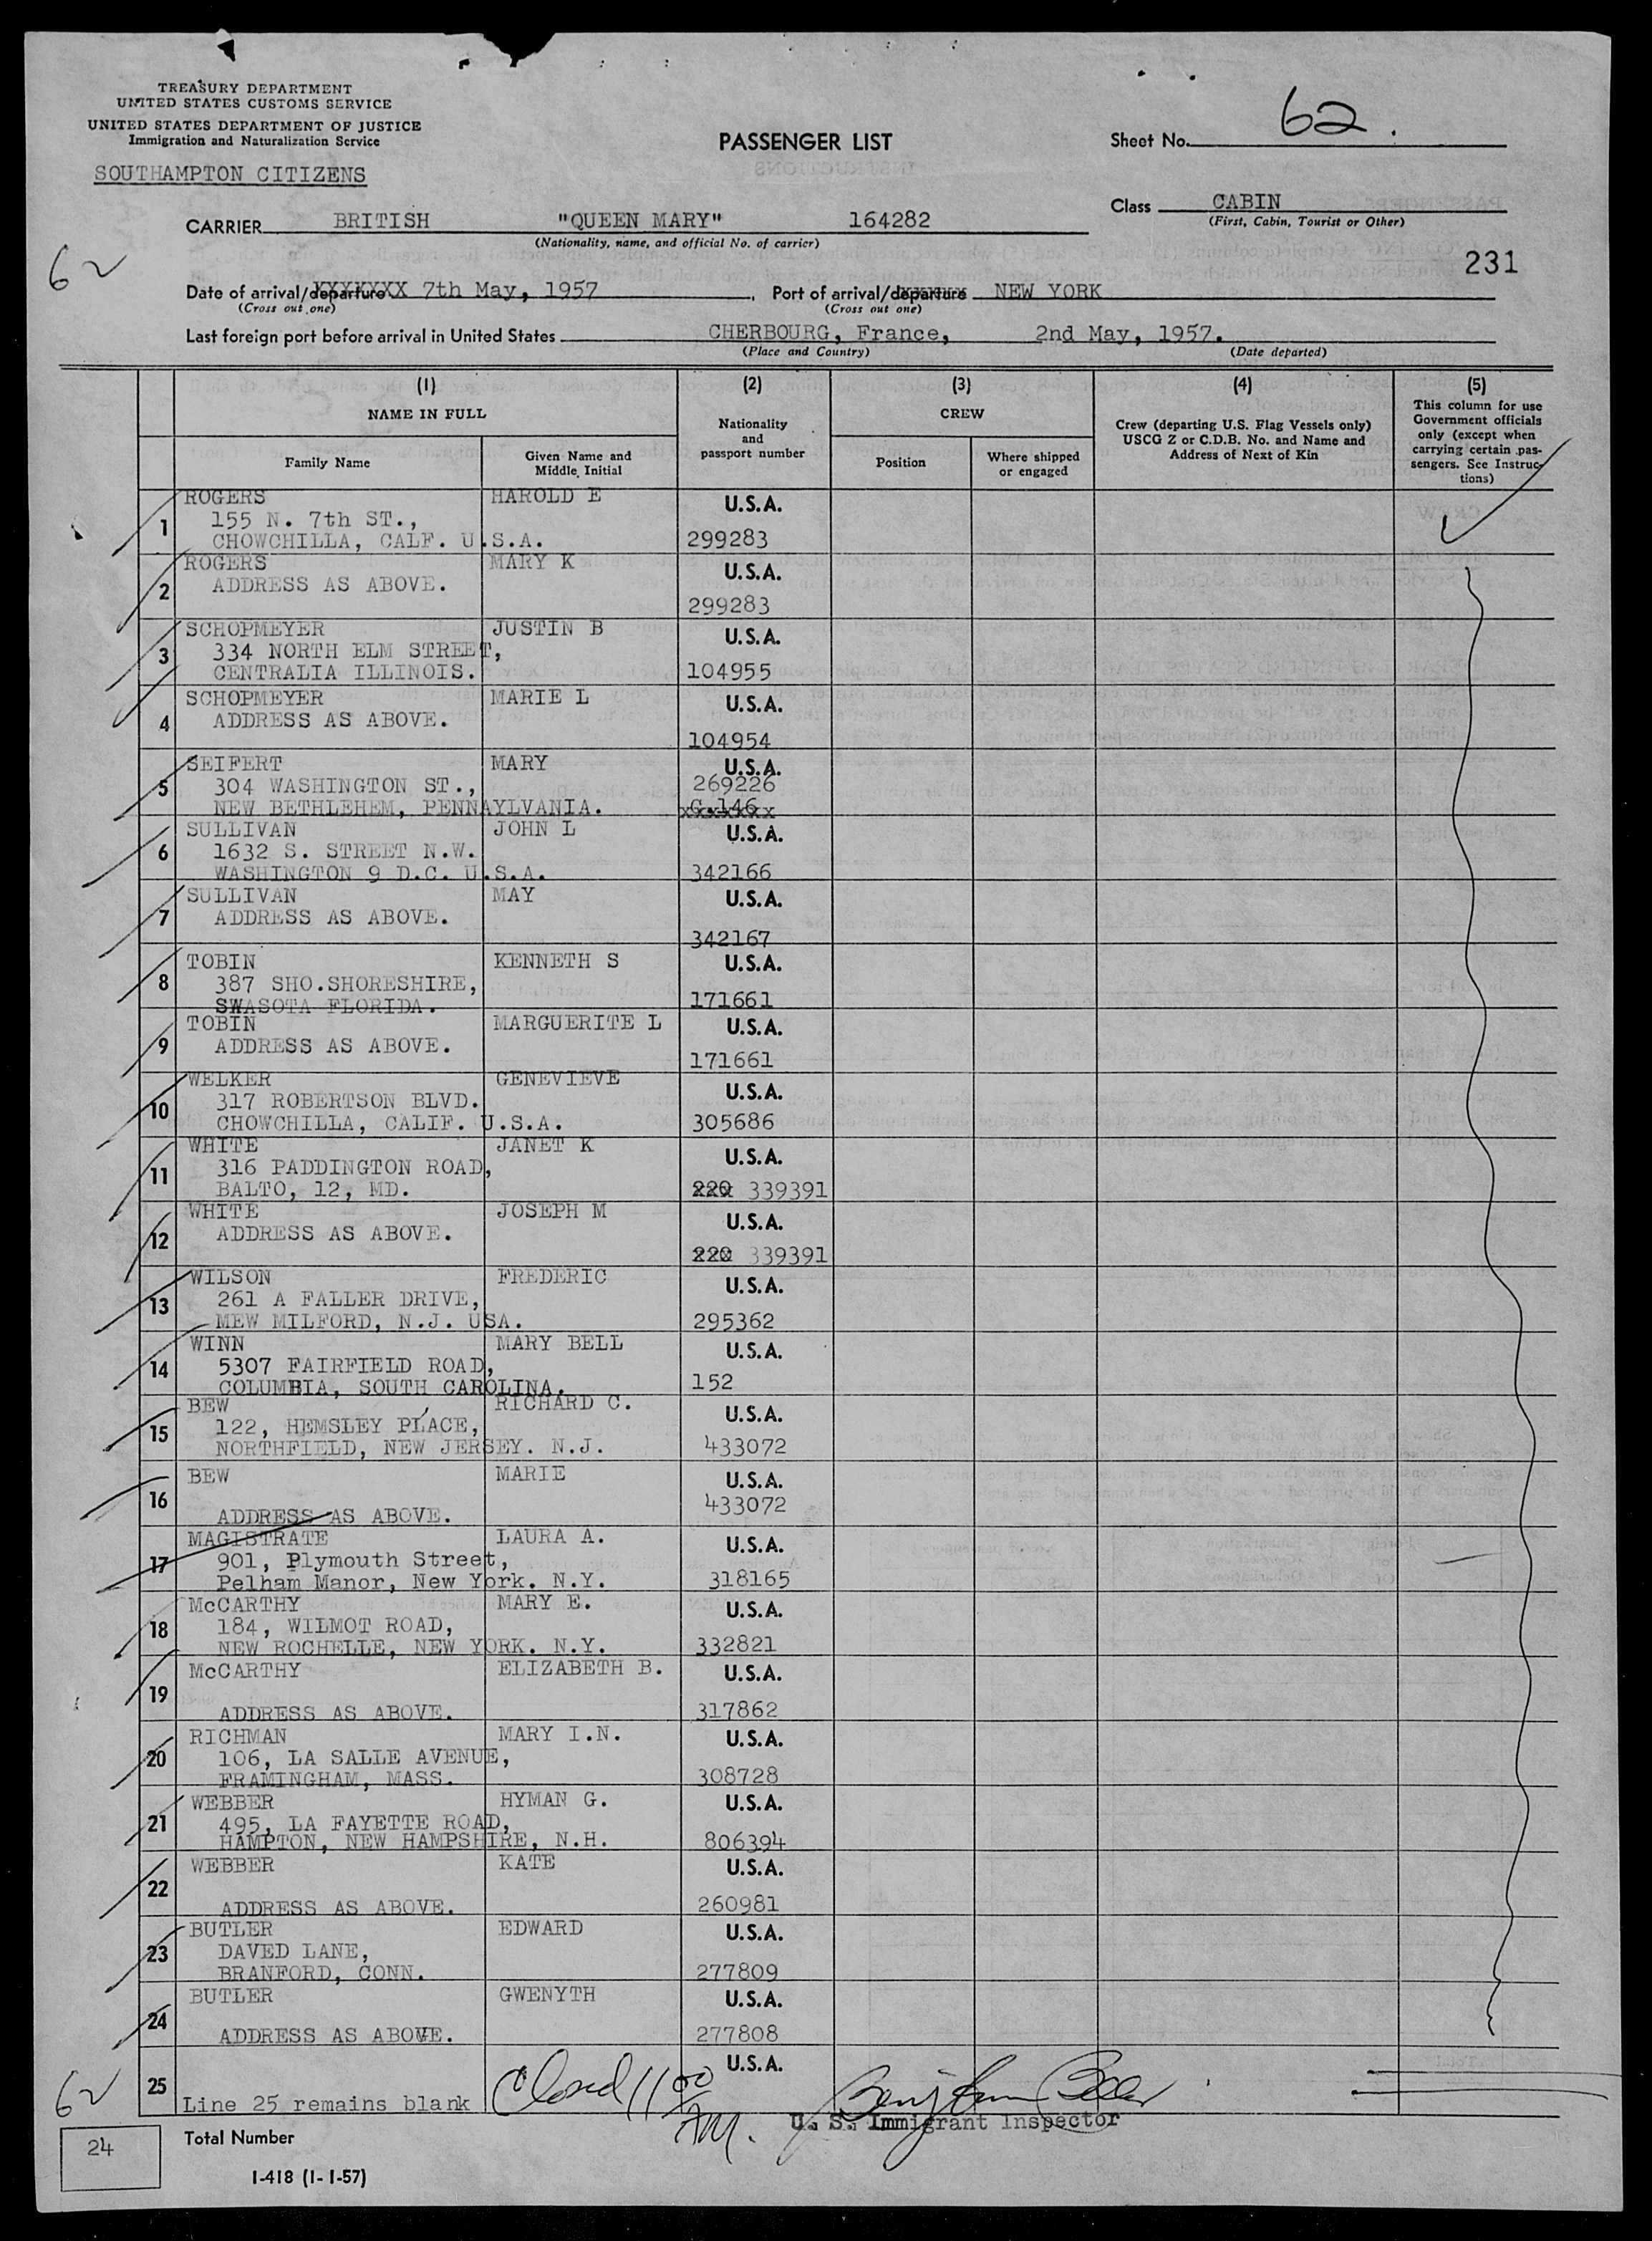 TREASURY DEPARTMENT
UNITED STATES CUSTOMS SERVICE
UNITED STATES DEPARTMENT OF JUSTICE
Immigration and Naturalization Service
SOUTHAMPTON CITIZENS
PASSENGER LIST
Sheet No. 62.
Class CABIN
(First, Cabin, Tourist or Other)
CARRIER BRITISH "QUEEN MARY" 164282
(Nationality, name, and official No. of carrier)
62
231
Date of arrival/departure XXXXXXX 7th May, 1957, Port of arrival/departure NEW YORK
(Cross out one) (Cross out one)
Last foreign port before arrival in United States CHERBOURG, France, 2nd May, 1957.
(Place and Country) (Date departed)
(1) (2) (3) (4) (5)
NAME IN FULL
Nationality and passport number
CREW
Crew (departing U.S. Flag Vessels only) USCG Z or C.D.B. No. and Name and Address of Next of Kin
This column for use Government officials only (except when carrying certain passengers. See Instructions)
Family Name Given Name and Middle Initial Position Where shipped or engaged
1 ROGERS HAROLD E U.S.A.
155 N. 7th ST.,
CHOWCHILLA, CALF. U.S.A. 299283
2 ROGERS MARY K U.S.A.
ADDRESS AS ABOVE.
299283
3 SCHOPMEYER JUSTIN B U.S.A.
334 NORTH ELM STREET,
CENTRALIA ILLINOIS. 104955
4 SCHOPMEYER MARIE L U.S.A.
ADDRESS AS ABOVE.
104954
5 SEIFERT MARY U.S.A.
304 WASHINGTON ST., 269226
NEW BETHLEHEM, PENNAYLVANIA.
6 SULLIVAN JOHN L U.S.A.
1632 S. STREET N.W.
WASHINGTON 9 D.C. U.S.A. 342166
7 SULLIVAN MAY U.S.A.
ADDRESS AS ABOVE.
342167
8 TOBIN KENNETH S U.S.A.
387 SHO.SHORESHIRE,
SWASOTA FLORIDA. 171661
9 TOBIN MARGUERITE L U.S.A.
ADDRESS AS ABOVE.
171661
10 WELKER GENEVIEVE U.S.A.
317 ROBERTSON BLVD.
CHOWCHILLA, CALIF. U.S.A. 305686
11 WHITE JANET K U.S.A.
316 PADDINGTON ROAD,
BALTO, 12, MD. 220 339391
12 WHITE JOSEPH M U.S.A.
ADDRESS AS ABOVE.
220 339391
13 WILSON FREDERIC U.S.A.
261 A FALLER DRIVE,
MEW MILFORD, N.J. USA. 295362
14 WINN MARY BELL U.S.A.
5307 FAIRFIELD ROAD,
COLUMBIA, SOUTH CAROLINA. 152
15 BEW RICHARD C. U.S.A.
122, HEMSLEY PLACE,
NORTHFIELD, NEW JERSEY. N.J. 433072
16 BEW MARIE U.S.A.
433072
ADDRESS AS ABOVE.
17 MAGISTRATE LAURA A. U.S.A.
901, Plymouth Street,
Pelham Manor, New York. N.Y. 318165
18 McCARTHY MARY E. U.S.A.
184, WILMOT ROAD,
NEW ROCHELLE, NEW YORK. N.Y. 332821
19 McCARTHY ELIZABETH B. U.S.A.
ADDRESS AS ABOVE. 317862
20 RICHMAN MARY I.N. U.S.A.
106, LA SALLE AVENUE,
FRAMINGHAM, MASS. 308728
21 WEBBER HYMAN G. U.S.A.
495, LA FAYETTE ROAD,
HAMPTON, NEW HAMPSHIRE, N.H. 806394
22 WEBBER KATE U.S.A.
ADDRESS AS ABOVE. 260981
23 BUTLER EDWARD U.S.A.
DAVED LANE,
BRANFORD, CONN. 277809
24 BUTLER GWENYTH U.S.A.
ADDRESS AS ABOVE. 277808
25 U.S.A.
Line 25 remains blank Closed 11 00 AM.
62
U. S. Immigrant Inspector
24 Total Number
I-418 (1-1-57)